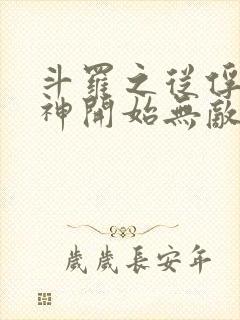 斗羅之從俘
神開始無敵
歲歲長安年